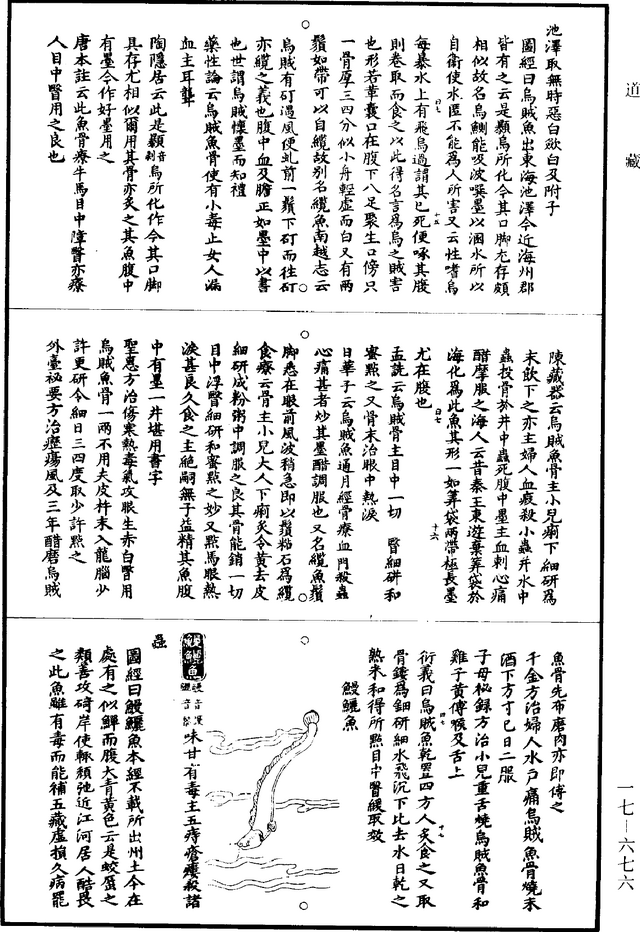 道藏
池澤取無時惡白歛白及附子
圖經曰烏賊魚出東海池澤今近海州郡
皆有之云是鸔烏所化今其口脚尤存頗
相似故名烏鰂能吸波噀墨以溷水所以
自衛使水匿不能為人所害又云性嗜烏
每暴水上有飛烏過謂其已死便啄其腹
則卷取而食之以此得名言為烏之賊害
也形若革囊口在腹下八足聚生口傍只
一骨厚三四分似小舟輕虛而白又有兩
鬚如帶可以自纜故別名纜魚南越志云
烏賊有矴遇風便虬前一鬚下矴而住矴
亦纜之義也腹中血及膽正如墨中以書
也世謂烏賊懷墨而知禮
藥性論云烏賊魚骨使有小毒止女人漏
血主耳聾
陶隱居云此是鸔音剥烏所化作今其口脚
具存尤相似爾用其骨亦炙之其魚腹中
有墨今作好墨用之
唐本註云此魚骨療牛馬目中障瞖亦療
人目中瞖用之良也
陳藏器云烏賊魚骨主小兒痢下細研為
末飲下之亦主婦人血瘕殺小蟲并水中
蟲投骨於井中蟲死腹中墨主血刺心痛
醋摩服之海人云昔秦王東遊棄筭袋於
海化為此魚其形一如筭袋兩帶極長墨
尤在腹也
孟詵云烏賊骨主目中一切瞖細研和
蜜點之又骨末治眼中熱淚
日華子云烏賊魚通月經骨療血門殺蟲
心痛甚者炒其墨醋調服也又名纜魚鬚
脚悉在眼前風波稍急即以鬚粘石為纜
食療云骨主小兒大人下痢炙令黃去皮
細研成粉粥中調服之良其骨能銷一切
目中浮瞖細研和蜜點之妙又點馬眼熱
淚甚良久食之主絶嗣無子益精其魚腹
中有墨一片堪用書字
聖惠方治傷寒熱毒氣攻眼生赤白瞖用
烏賊魚骨一兩不用大皮杵末入龍腦少
許更研令細日三四度取少許點之
外臺祕要方治癧瘍風及三年醋磨烏賊
魚骨先布磨肉赤即傅之
千金方治婦人水戶痛烏賊魚骨燒末
酒下方寸匕日二服
子母秘録方治小兒重舌燒烏賊魚骨和
雞子黃傅喉及舌上
衍義曰烏賊魚乾置四方人炙食之又取
骨鏤為鈿研細水飛沉下比去水日乾之
熟末和得所點目中瞖緩取效
鰻鱺魚
鰻鱺魚 味甘有毒主五痔瘡瘻殺諸
蟲
圖經曰鰻鱺魚本經不載所出州土今在
處有之似鱓而腹大青黃色云是蛟蜃之
類善攻碕岸使輒頹弛近江河居人酷畏
之此魚雖有毒而能補五藏虛損久病罷
一七—六七六